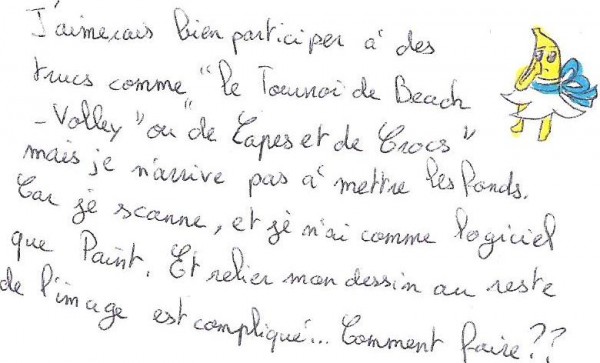 J'aimerais bien participer à des
trucs comme "le Tournoi de Beach
-Volley" ou "de Capes et de Crocs"
mais je n'arrive pas à mettre les fonds.
Car je scanne, et je n'ai comme logiciel
que Paint. Et relier mon dessin au reste
de l'image est compliqué... Comment faire ??